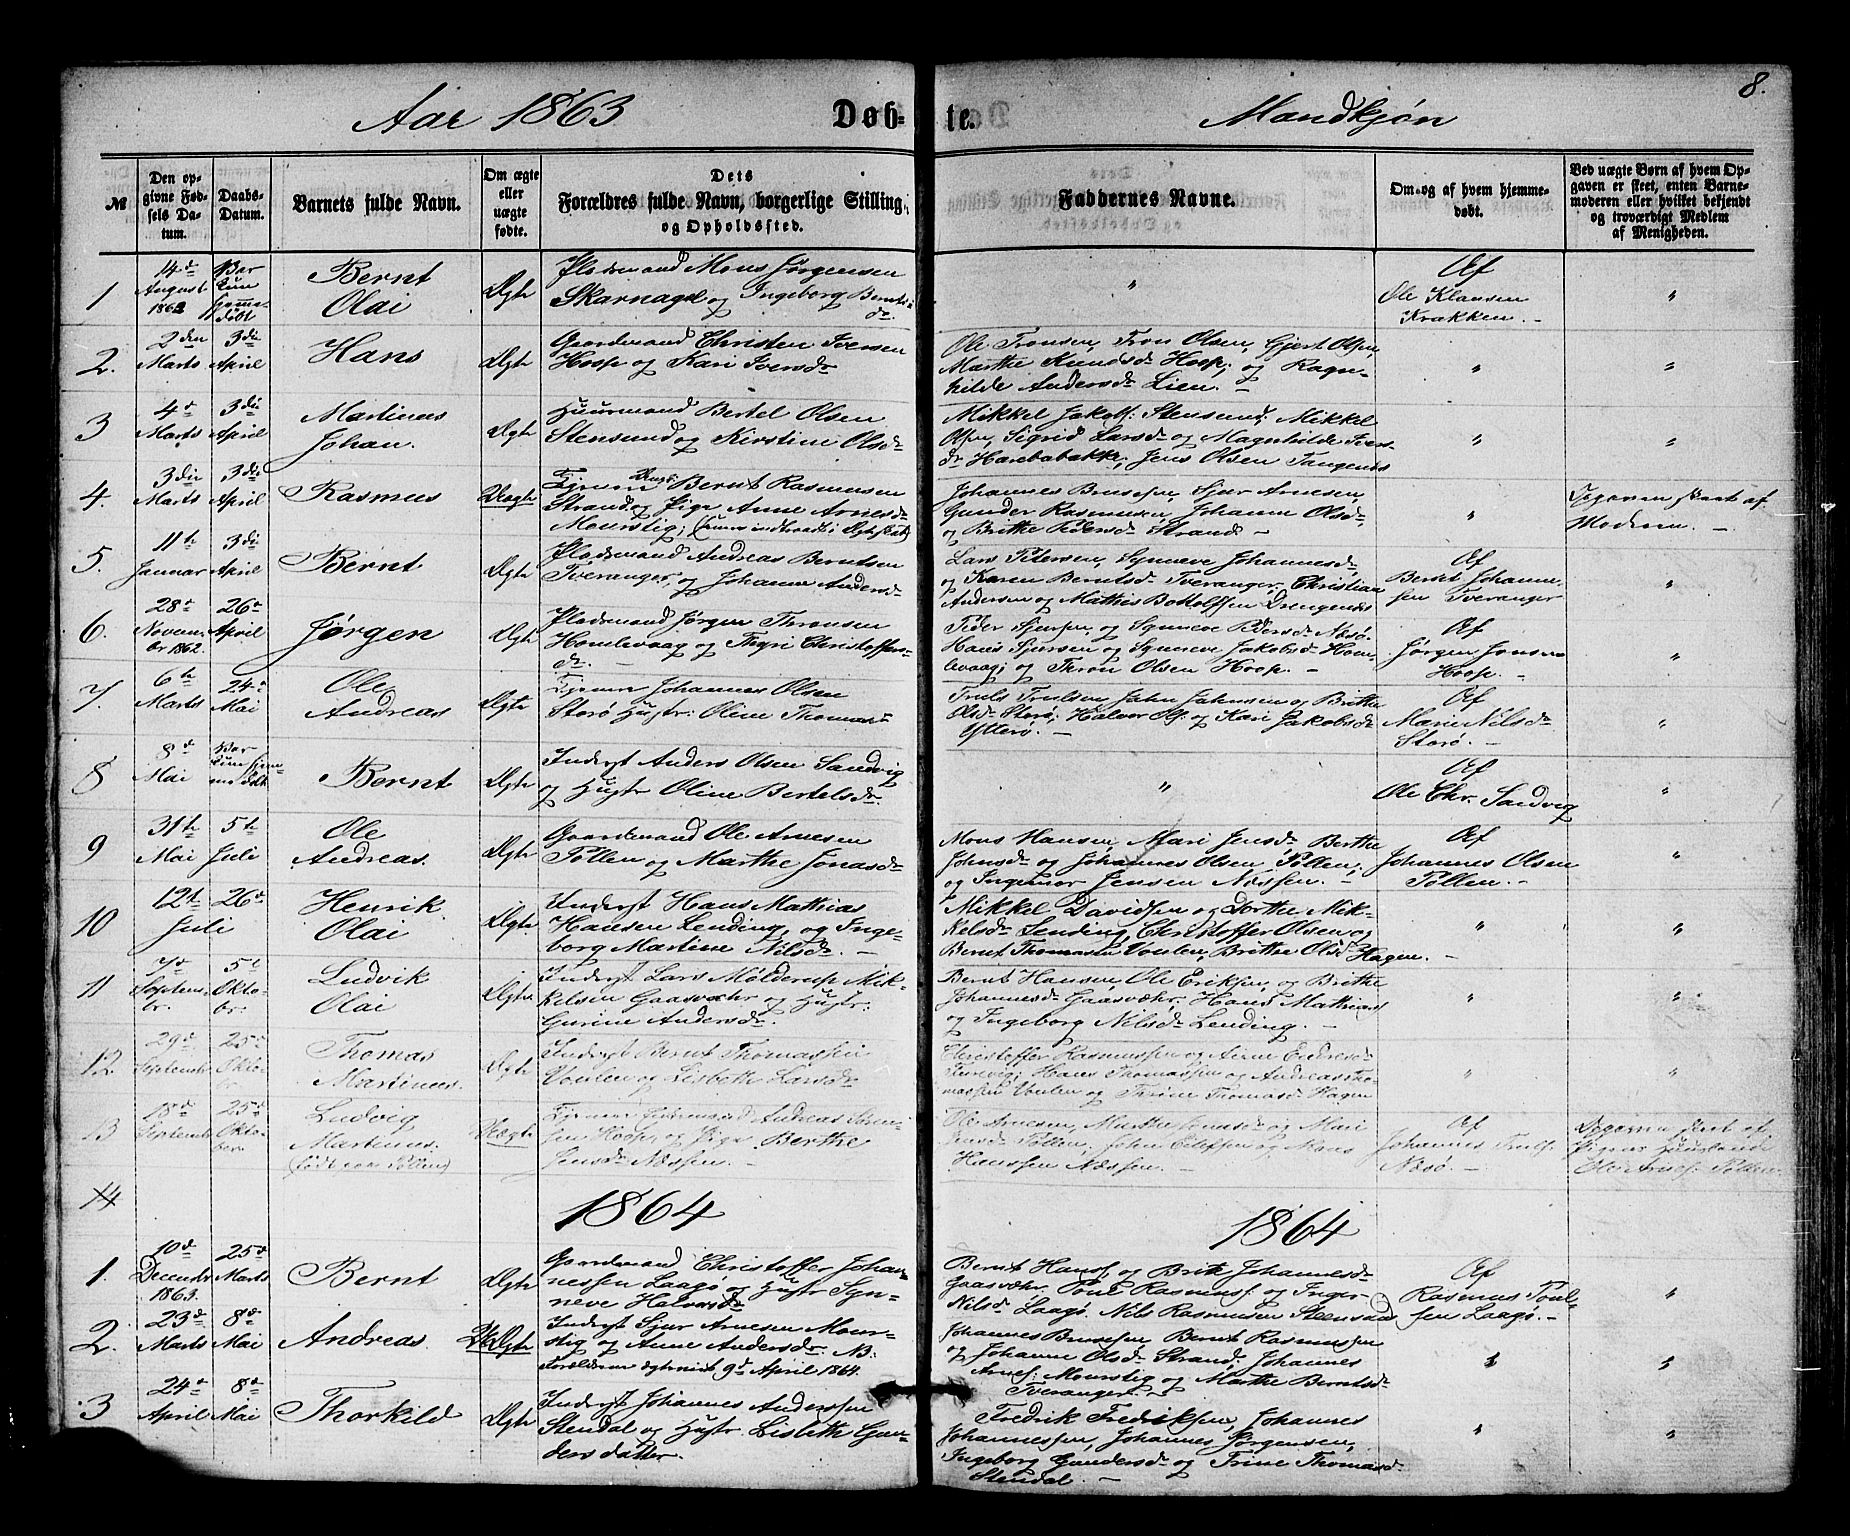 8.
Aar 1863 Døb-te. Mandkjøn
№
Den op-
givne Fød-
sels Da-
tum.
Daabs-
Datum.
Barnets fulde Navn.
Om ægte
eller
uægte
fødte.
Dets
Forældres fulde Navn, borgerlige Stilling,
og Opholdssted.
Faddernes Navne.
Om og af hvem hjemme-
døbt.
Ved uægte Børn af hvem Op-
gaven er skeet, enten Barne-
moderen eller hvilket bekjendt
og troværdigt Medlem
af Menigheden.
1
14de
August
1862
Bar
kun
hjemme-
døbt
Bernt
Olai
Ægte
Pladsmand Mons Jørgensen
Skarnagel og Ingeborg Bernts-
dr.
"
Af
Ole Klausen
Krækken. -
"
2.
2den
Marts
3die
April
Hans
Ægte
Gaardmand Christen Iversen
Hoop og Kari Iversdr
Ole Tronsen, Tron Olsen, Gjert Olsen,
Marthe Knudsdr Hoop; og Ragn-
hilde Andersdr Lien. -
"
"
3
4de
Marts
3die
April
Martinus
Johan.
Ægte
Huusmand Bertel Olsen
Stensund og Kirstine Olsdr
Mikkel Jakobs: Stensund; Mikkel
Olsen, Sigrid Larsdr og Magnhilde Ivers-
dr Harebakke; Jens Olsen Tangenes
"
"
4.
3die
Marts
3die
April
Rasmus
Uægte
Ungk. Bernt Rasmussen
Strand og Pige Anne Arnesdr
Mourstig; (senere indtraadt i Ægteskab)
Johannes Brusesen, Sjur Arnesen
Gunder Rasmussen, Johanne Olsdr
og Brithe Pedersdr Strand -
"
Opgaven skeet af
Moderen. -
5.
11te
Januar
3die
April
Bernt
Ægte
Pladsmand Andreas Berntsen
Tveranger og Johanne Andersdr
Lars Petersen, Synneve Johannesdr
og Karen Berntsdr Tveranger, Christian
Andersen og Mathis Bottolfsen Drengenes
Af
Bernt Johanne-
sen Tveranger
"
6.
28de
Novem-
br 1862.
26de
April
Jørgen
Ægte
Pladsmand Jørgen Thronsen
Homlevaag og Thyri Christoffers-
dr. -
Peder Sjursen, og Synneve Pedersdr Næsø.
Hans Sjursen og Synneve Jakobsdr Hom-
levaag; og Thron Olsen Hoop. -
Af
Jørgen Jonsen
Hoop. -
"
7.
6te
Marts
24de
Mai
Ole
Andreas
Ægte
Johannes Olsen
Storø Hustr: Oline Thomasdr
Truls Trulsen, Jahn Jahnsen og Brithe
Olsdr Storø; Halvor Ols: og Kari Jakobsdr
Ytterø. -
Af
Marie Nilsdr
Storø. -
"
8
8de
Mai
Bar
kun hjem-
me døbt
Bernt
Ægte
Inderst Anders Olsen Sandvig
og Hustr Oline Bertelsdr.
"
Af
Ole Chr. Sandvig
"
9
31te
Mai
5te
Juli
Ole
Andreas.
Ægte
Gaardmand Ole Arnesen
Pollen og Marthe Jonasdr
Mons Hansen, Mari Jensdr, Berthe
Johnsdr og Johannes Olsen Pollen;
og Ingemor Jensen Næssen. -
Af
Johannes Olsen
Pollen. -
"
10
12te 26de
Juli
Henrik
Olai
Ægte
Inderst Hans Mathias
Hansen Lending, og Inge-
borg Martine Nilsdr. -
Mikkel Davidsen og Dorthe Mik-
kelsdr Lending, Christoffer Olsen og
Bernt Thomassen Voulen, Brithe Olsdr Hagen. -
"
"
11
7de
Septem-
br.
5te
Okto-
br.
Ludvik
Olai
Ægte
Inderst Lars Mølderup Mik-
kelsen Gaasvæhr og Hustr:
Gurine Andersdr.
Bernt Hansen, Ole Eriksen, og Brithe
Johannesdr Gaasvæhr. Hans Mathias
og Ingeborg Nilsdr Lending. -
"
"
12.
29de
Septembr
25de
Okto-
br.
Thomas
Martinus.
Ægte
Inderst Bernt Thomassen
Voulen og Lisbeth Larsdr
Christoffer Rasmussen og Anne Endresdr
Hans Thomassen og Andreas Tho-
massen Voulen og Trine Thomasdr Hagen
"
"
13
18de
Septembr
25de
Okto-
ber.
Ludvig
Martinus.
(født paa Pollen)
Uægte
Andreas Søren-
sen Hoop, og Pige Berthe
Jensdr Næssen. -
Ole Arnesen, Marthe Jonasdr og Mari
Jensdr Pollen, John Olufsen og Mons
Hanssen Næssen. -
Af
Johannes Truls:
Næsø. -
Opgaven skeet af
Pigens Huusbonde
Ole Arnes: Pollen.
14
1864
1864
1.
10de
Decembr
1863.
25de
Marts
Bernt
Ægte
Gaardmand Christoffer Johan-
nessen Laagø og Hustr Syn-
neve Halvorsdr
Bernt Hans:, og Brith Johannesdr
Gaasvæhr. Poul Rasmus: og Inger
Nilsdr Laagø. Nils Rasmussen Steensund
Af
Rasmus Poul-
sen Laagø. -
"
2.
23de
Marts
8de
Mai
Andreas.
Ægte
Inderst Sjur Arnesen Mour-
stig og Anne Andersdr. NB:
Forældrene ægteviet 9de April 1864.
Johannes Brusesen, Bernt Rasmussen
og Johanne Olsdr Strand; Johannes
Arnes: Mourstig og Marthe Berntsdr
Tveranger. -
"
"
3
24de
April
8de
Mai
Thorkild
Ægte
Inderst Johannes Anderssen
Stendal og Hustr Lisbeth Gun-
ders datter.
Fredrik Fredriksen, Johannes
Johannessen, Johannes Jørgensen,
Ingeborg Gundersdr og Trine Thomasdr
Stendal. -
"
"